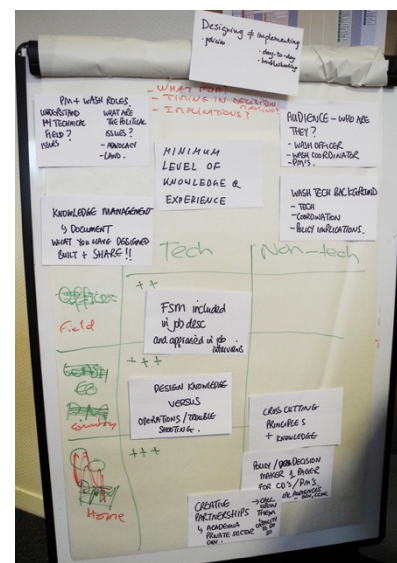 Designing & implementing
- policies
- day-to-day
- troubleshooting
- WHAT FOR?
- TIMING IN DECISION MAKING
- IMPLICATIONS?
PM + WASH ROLES.
UNDERSTAND
MY TECHNICAL
FIELD?
ISSUES
WHAT ARE
THE POLITICAL
ISSUES?
- ADVOCACY
- LAND.
MINIMUM
LEVEL OF
KNOWLEDGE &
EXPERIENCE
AUDIENCE - WHO ARE
THEY?
- WASH OFFICER
- WASH COORDINATOR
- PM'S.
WASH TECH BACKGROUND
- TECH
- COORDINATION
- POLICY IMPLICATIONS.
KNOWLEDGE MANAGEMENT
↳ DOCUMENT
WHAT YOU HAVE DESIGNED
BUILT + SHARE!!
Tech
Non-tech
Officer
Field
++
FSM included
in job desc
and appraised in job
interviews
WASH
Co
PM
Country
+++
DESIGN KNOWLEDGE
VERSUS
OPERATIONS/TROUBLE
SHOOTING.
CROSS CUTTING
PRINCIPLES
+ KNOWLEDGE
Home
+++
POLICY/DECISION
MAKER 1 PAGER
FOR CD'S/PM'S.
CREATIVE
PARTNERSHIPS
↳ ACADEMIA
PRIVATE SECTOR
GOV.